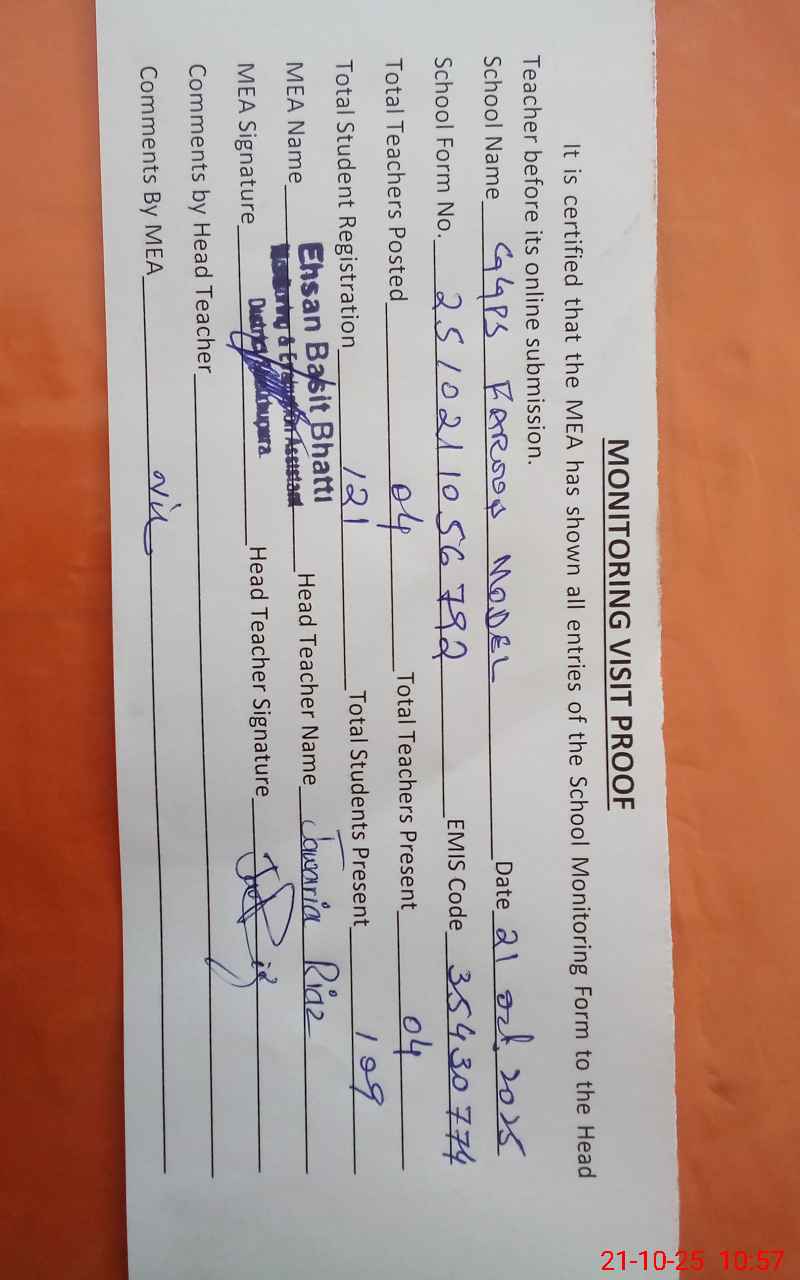 MONITORING VISIT PROOF
It is certified that the MEA has shown all entries of the School Monitoring Form to the Head
Teacher before its online submission.
School Name GGPS FAROOQ MODEL Date 21 Oct. 2025
School Form No. 2510211056792 EMIS Code 35430774
Total Teachers Posted 04 Total Teachers Present 04
Total Student Registration 121 Total Students Present 109
MEA Name Ehsan Basit Bhatti Head Teacher Name Jawaria Riaz
Monitoring & Evaluation Assistant
MEA Signature District Head Teacher Signature
Comments by Head Teacher
Comments By MEA Nil
21-10-25 10:57